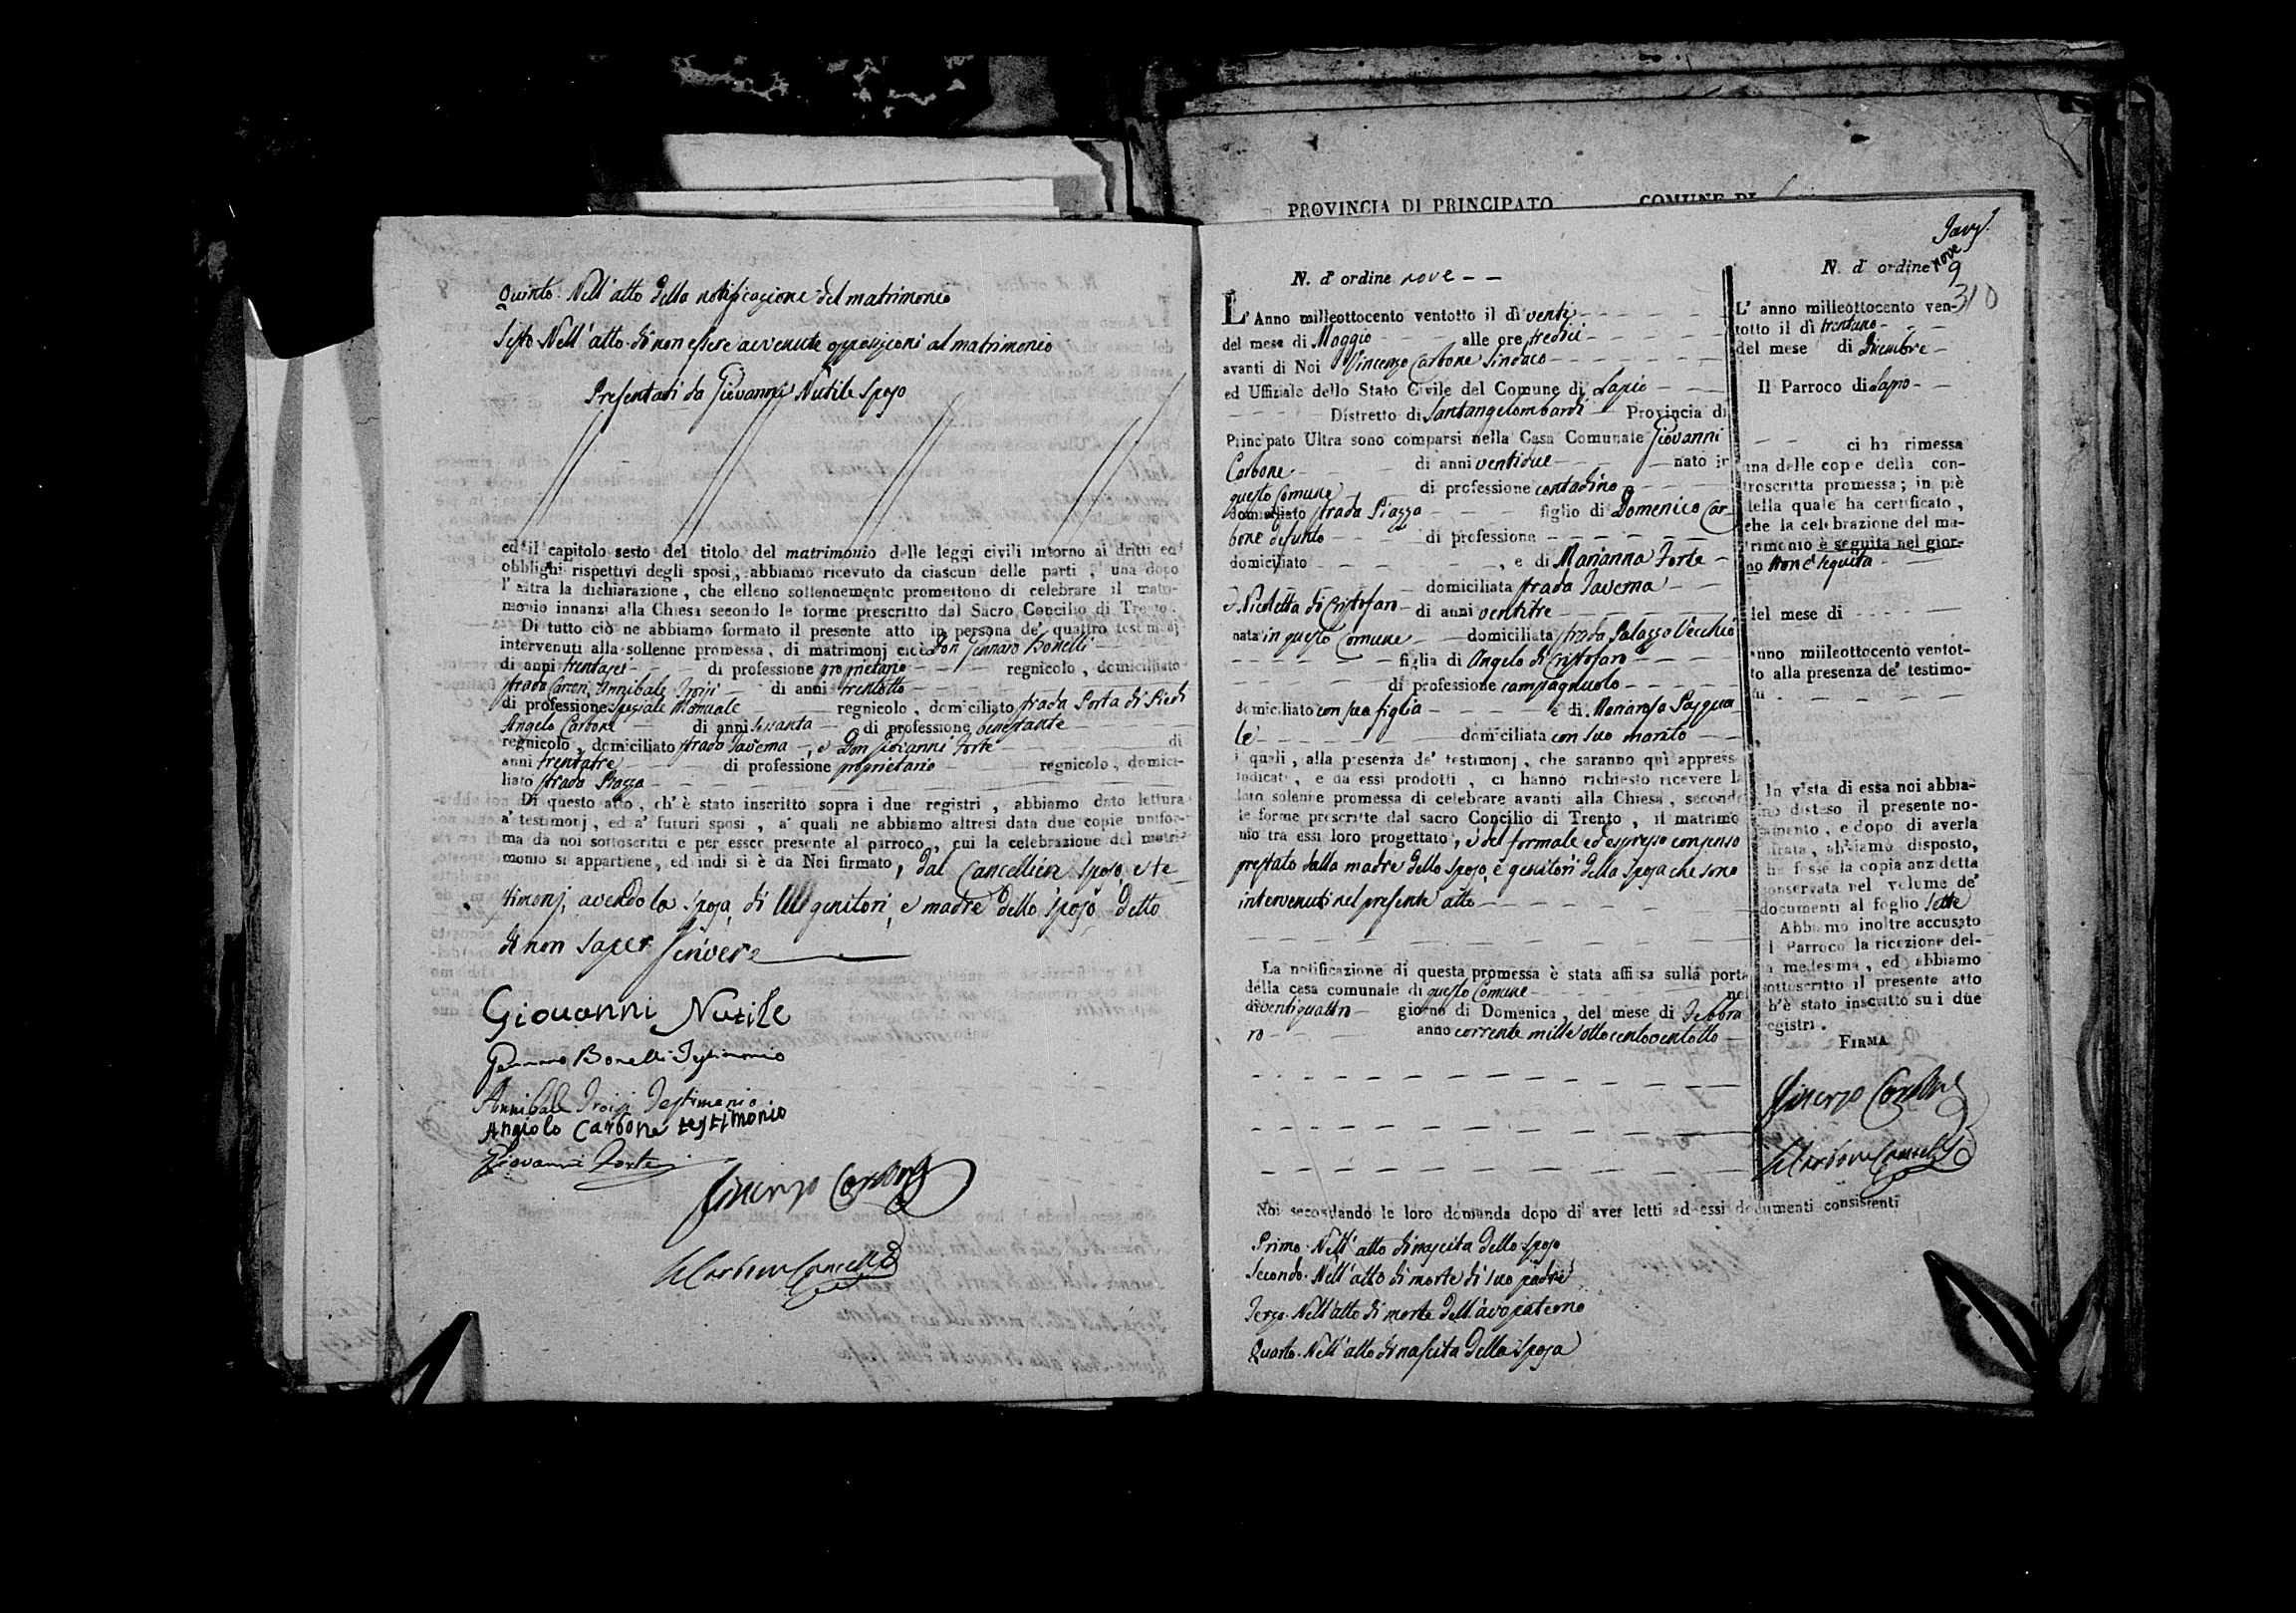 Quinto. Nell' atto della notificazione del matrimonio
Sesto. Nell' atto di non essere avvenute opposizioni al matrimonio
Presentati da Giovanni Nutile sposo
ed il capitolo sesto del titolo del matrimonio delle leggi civili intorno ai dritti ed
obblighi rispettivi degli sposi, abbiamo ricevuto da ciascun delle parti, una dopo
l' altra la dichiarazione, che elleno sollennemente promettono di celebrare il matri-
monio innanzi alla Chiesa secondo le forme prescritto dal Sacro Concilio di Trento.
Di tutto ciò ne abbiamo formato il presente atto in persona de' quattro testimonj
intervenuti alla sollenne promessa, di matrimonj cioè Don Gennaro Bonelli
di anni trentasei di professione proprietario regnicolo, domiciliato
strada Carceri, Annibale Troisi di anni trentotto
di professione speziale manuale regnicolo, domiciliato strada Porta di Piedi
Angelo Carbone di anni sessanta di professione benestante
regnicolo, domiciliato strada Taverna, e Don Giovanni Forte di
anni trentatre di professione proprietario regnicolo, domici-
liato strada Piazza
Di questo atto, ch' è stato inscritto sopra i due registri, abbiamo dato lettura
a' testimonj, ed a' futuri sposi, a' quali ne abbiamo altresì data due copie unifor-
ma da noi sottoscritti e per esser presente al parroco, cui la celebrazione del matri-
monio si appartiene, ed indi si è da Noi firmato, dal Cancelliere sposo, e te-
stimonj, avendo la sposa, di genitori, e madre dello sposo detto
di non saper scrivere
Giovanni Nutile
Gennaro Bonelli Testimonio
Annibale Troisi Testimonio
Angiolo Carbone testimonio
Giovanni Forte
Vincenzo Carbone
PROVINCIA DI PRINCIPATO COMUNE DI
N. d' ordine nove
L' Anno milleottocento ventotto il dì venti
del mese di Maggio alle ore tredici
avanti di Noi Vincenzo Carbone Sindaco
ed Uffiziale dello Stato Civile del Comune di Lapio
Distretto di Santangelombardi Provincia di
Principato Ultra sono comparsi nella Casa Comunale Giovanni
Carbone di anni ventidue nato in
questo Comune di professione contadino
domiciliato strada Piazza figlio di Domenico Car-
bone defunto di professione
domiciliato , e di Marianna Forte
domiciliata strada Taverna
e Nicoletta di Cristofaro di anni ventitre
nata in questo Comune domiciliata strada Palazzo Vecchio
figlia di Angelo di Cristofaro
di professione campagnuolo
domiciliato con sua figlia e di Mariarosa Pasqua-
le domiciliata con suo marito
i quali, alla presenza de' testimonj, che saranno quì appresso
indicati, e da essi prodotti, ci hanno richiesto ricevere la
loro solenne promessa di celebrare avanti alla Chiesa, secondo
le forme prescritte dal sacro Concilio di Trento, il matrimo
nio tra essi loro progettato, e del formale ed espresso consenso
prestato dalla madre dello sposo, e genitori della sposa che sono
intervenuti nel presente atto
La notificazione di questa promessa è stata affissa sulla porta
della casa comunale di questo Comune nel
dì ventiquattro giorno di Domenica, del mese di Febbra
ro anno corrente mille ottocentoventotto
Noi secondando le loro domanda dopo di aver letti ad essi documenti consistenti
Primo. Nell' atto di nascita dello sposo
Secondo. Nell' atto di morte di suo padre
Terzo. Nell' atto di morte dell' avo paterno
Quarto. Nell' atto di nascita della sposa
N. d' ordine nove
9
310
L' anno milleottocento ven-
totto il dì trentuno
del mese di Dicembre
Il Parroco di Lapio
ci ha rimessa
una delle copie della con-
troscritta promessa; in piè
della quale ha certificato,
che la celebrazione del ma-
trimonio è seguita nel gior-
no non è seguita
del mese di
anno milleottocento ventot-
to alla presenza de' testimo-
nj
In vista di essa noi abbia-
mo disteso il presente no-
tamento, e dopo di averla
cifrata, abbiamo disposto,
che fosse la copia anzidetta
conservata nel volume de'
documenti al foglio sette
Abbiamo inoltre accusato
al Parroco la ricezione del-
la medesima, ed abbiamo
sottoscritto il presente atto
ch'è stato inscritto su i due
registri.
FIRMA
Vincenzo Carbone